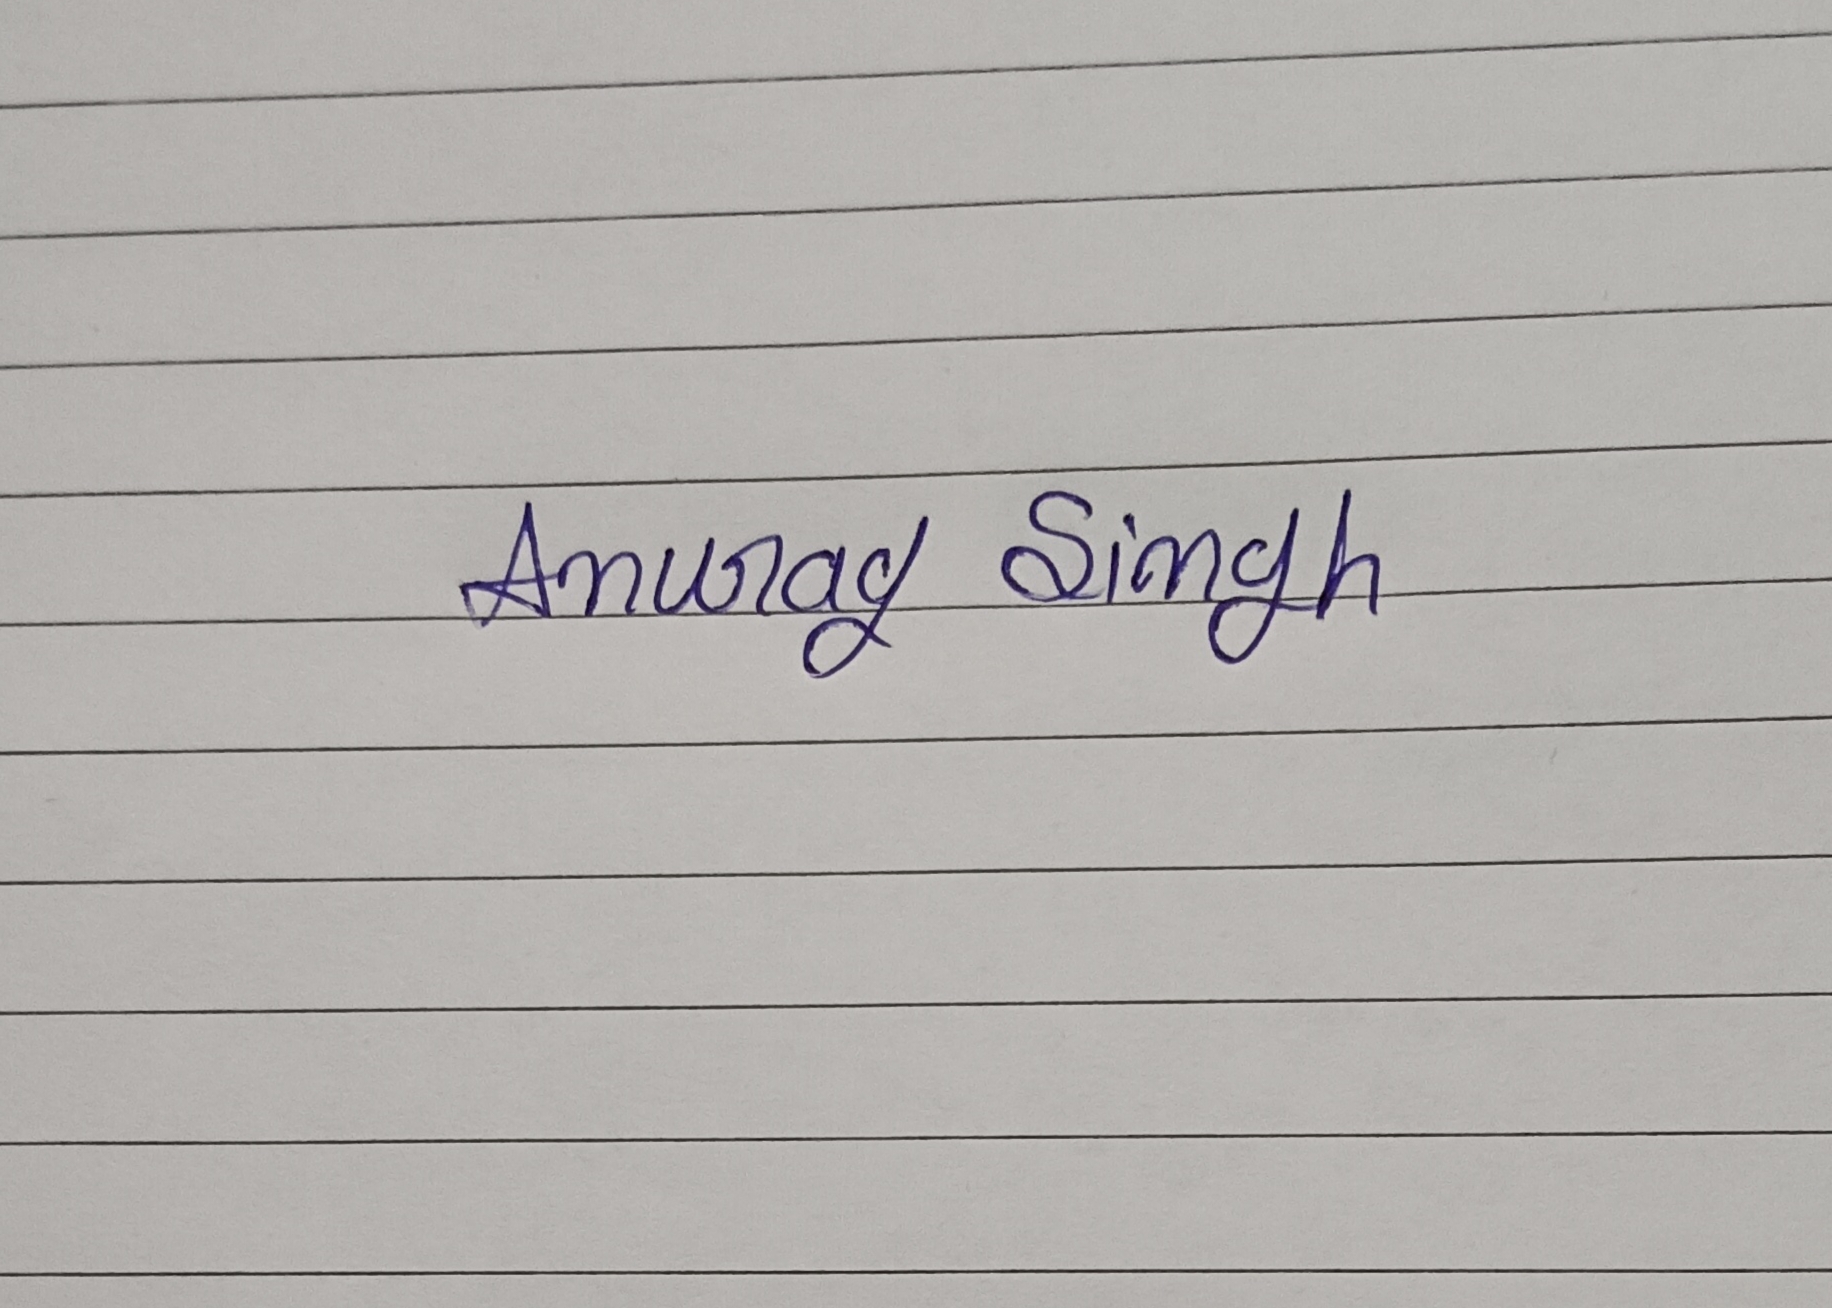 Anurag Singh